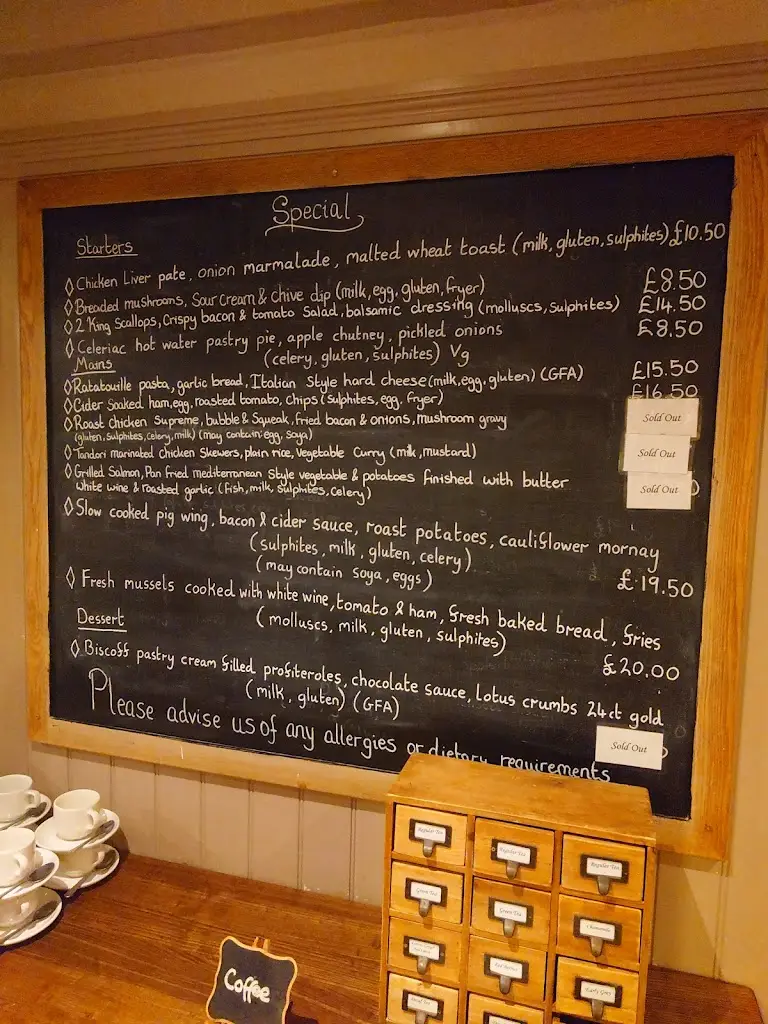 Special
Starters
◊ Chicken Liver pate, onion marmalade, malted wheat toast (milk, gluten, sulphites) £10.50
◊ Breaded mushrooms, Sour cream & chive dip (milk, egg, gluten, fryer) £8.50
◊ 2 King Scallops, Crispy bacon & tomato Salad, balsamic dressing (molluscs, Sulphites) £14.50
◊ Celeriac hot water pastry pie, apple chutney, pickled onions £8.50
(celery, gluten, sulphites) Vg
Mains
◊ Ratatouille pasta, garlic bread, Italian Style hard cheese (milk, egg, gluten) (GFA) £15.50
◊ Cider Soaked ham, egg, roasted tomato, chips (Sulphites, egg, fryer) £16.50
◊ Roast chicken Supreme, bubble & Squeak, fried bacon & onions, mushroom gravy Sold Out
(gluten, sulphites, celery, milk) (may contain: egg, soya)
◊ Tandori marinated chicken Skewers, plain rice, vegetable Curry (milk, mustard) Sold Out
◊ Grilled Salmon, Pan fried mediterranean Style vegetable & potatoes finished with butter Sold Out
white wine & roasted garlic (fish, milk, Sulphites, celery)
◊ Slow cooked pig wing, bacon & cider sauce, roast potatoes, cauliflower mornay
(sulphites, milk, gluten, celery)
(may contain soya, eggs) £19.50
◊ Fresh mussels cooked with white wine, tomato & ham, fresh baked bread, fries
(molluscs, milk, gluten, sulphites) £20.00
Dessert
◊ Biscoff pastry cream filled profiteroles, chocolate sauce, Lotus crumbs 24ct gold
(milk, gluten) (GFA) Sold Out
Please advise us of any allergies or dietary requirements
Regular Tea
Regular Tea
Regular Tea
Green Tea
Green Tea
Chamomile
Earl Grey
Decaf Tea
Coffee